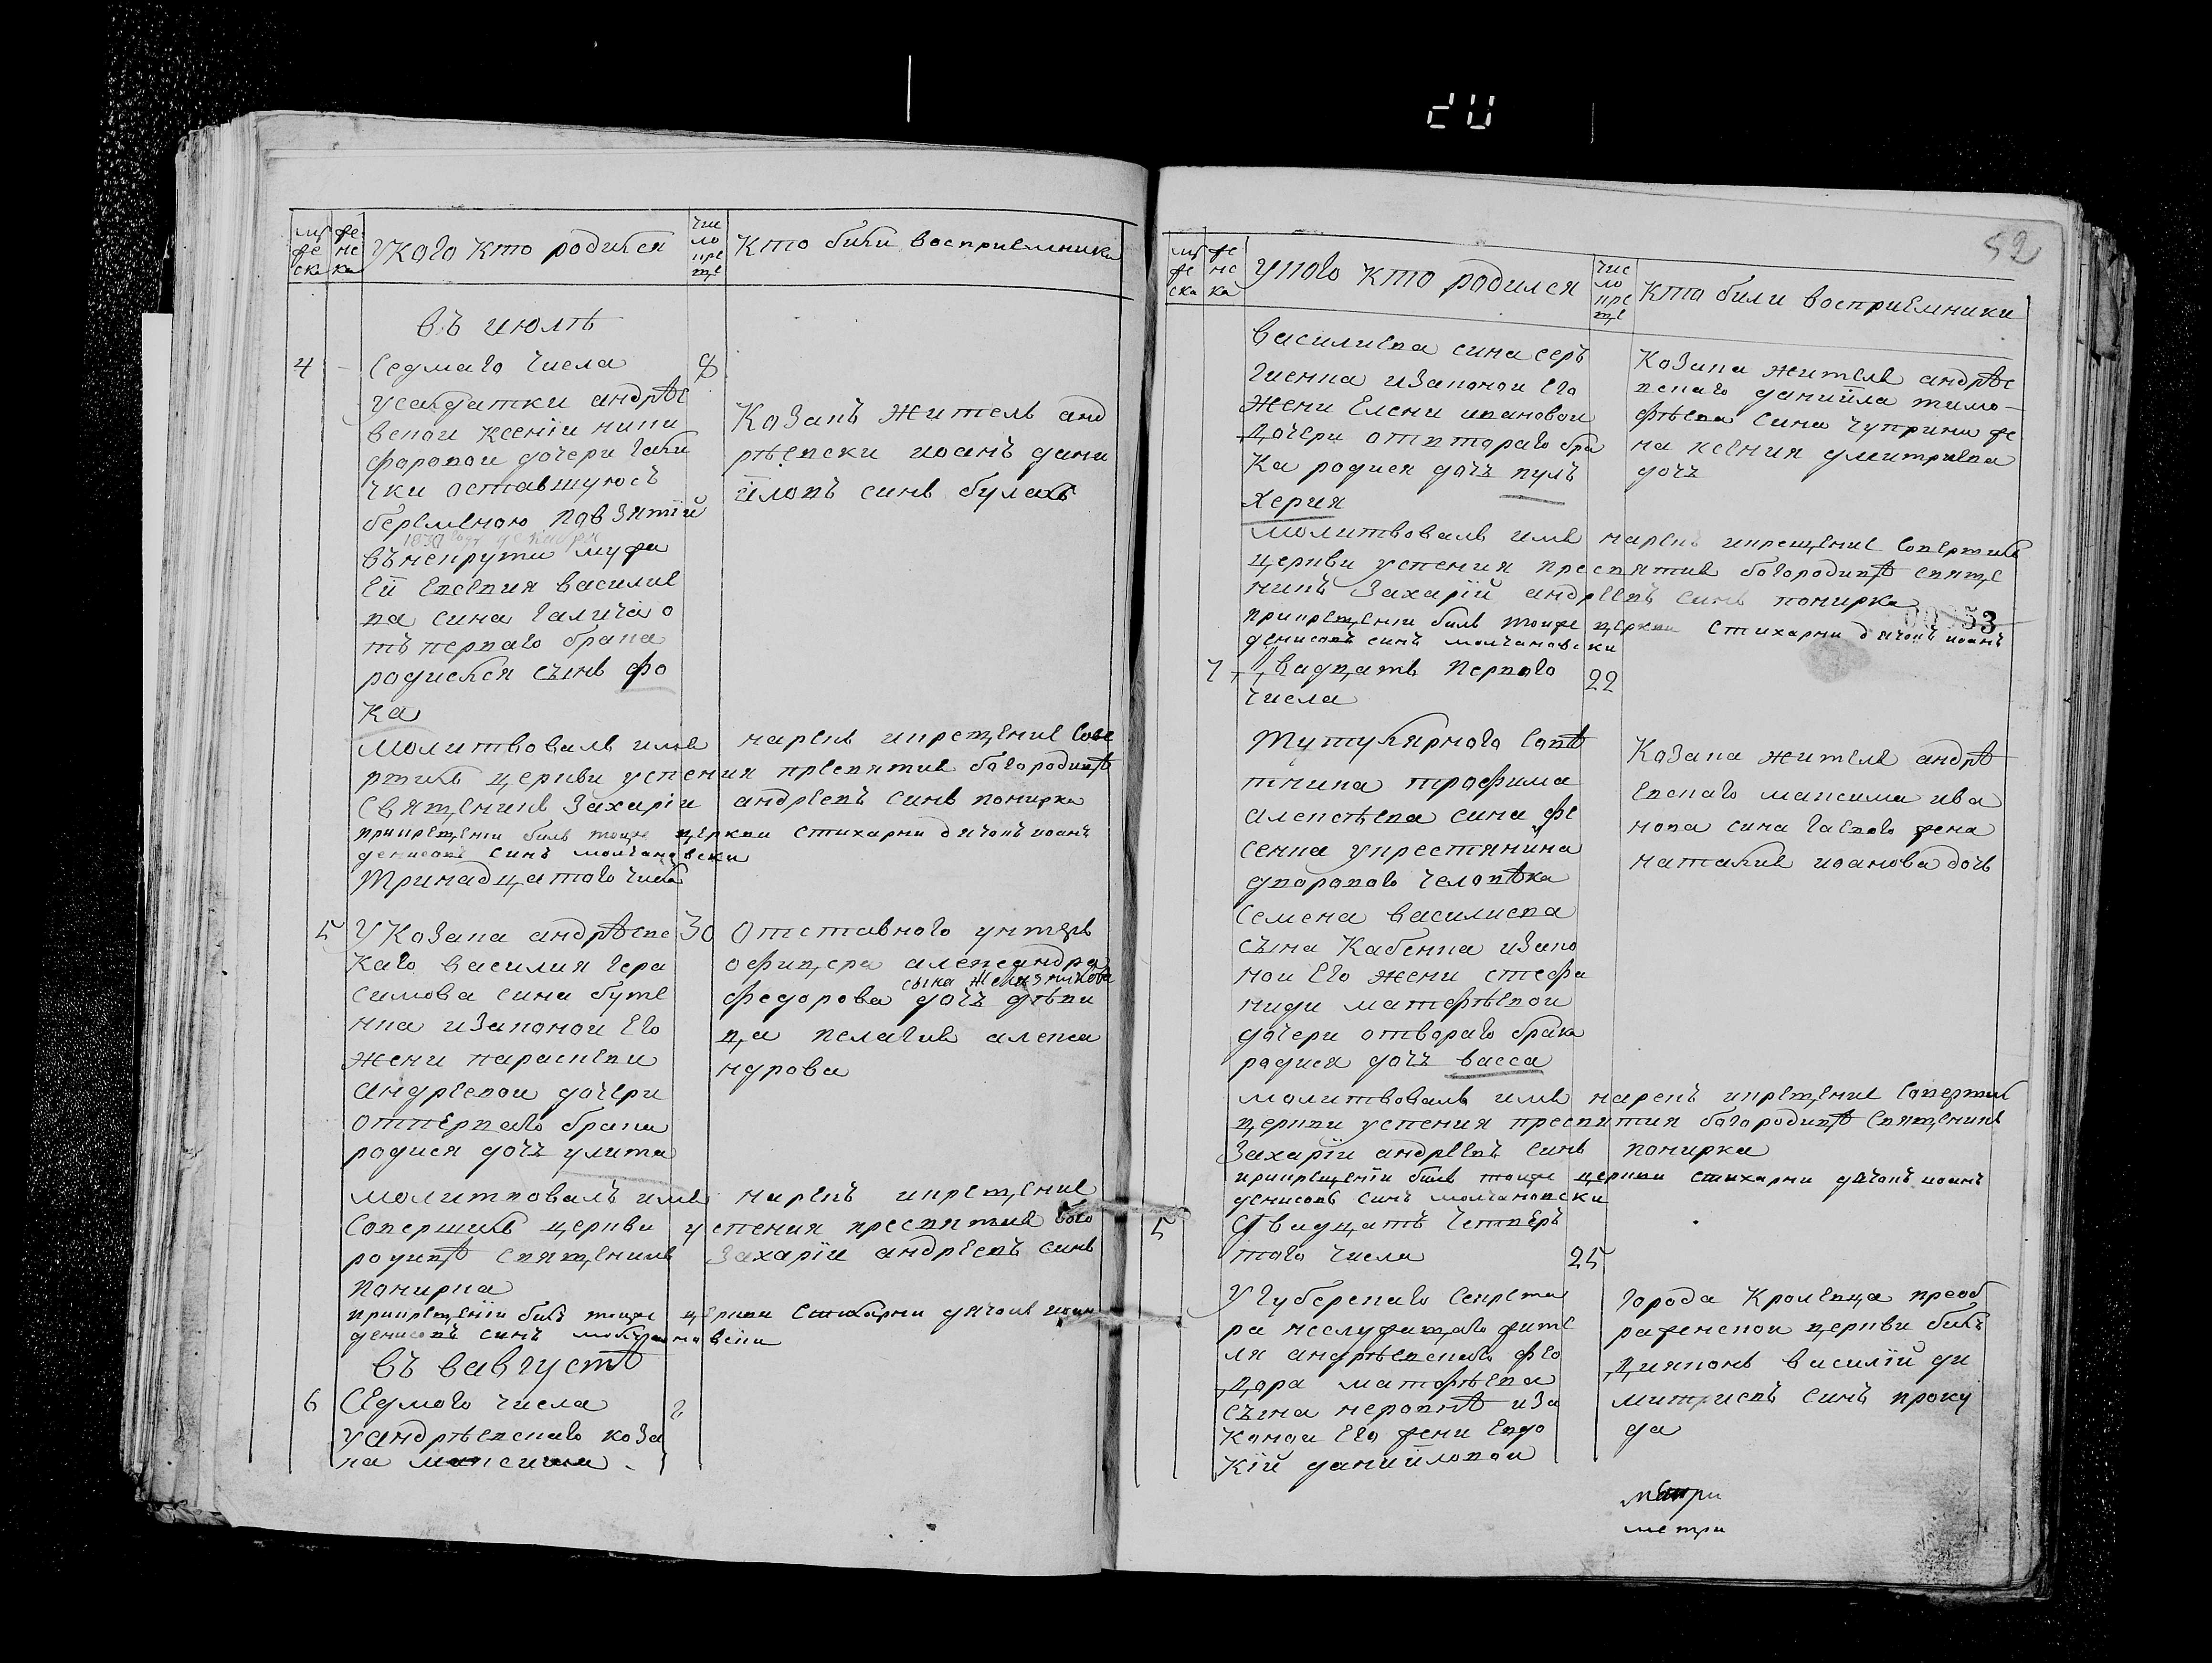 му
же
ска
же
нс
ка
Укого кто родился
чис
ло
кре
ще
кто били восприемники
въ июлѣ
4
Седмаго числа
8
усалдатки андрѣе
вской ксенiи ники
форовой дочери гали
чки оставшуюсъ
беременою по взятiй
1837 году декабря
въ некрути мужа
Ей Евсевия василие
ва сина галича о
тъ перваго брака
родиелся сынъ фо
ка
Козакъ житель анд
рѣевски иоанъ дани
iловъ синъ булахъ
молитвовалъ имя нарекъ икрещение сове
ршилъ церкви успения пресвятия богородицѣ
Священикъ Захарiи андреевъ синъ покирка
прикрещенiи билъ тоиже церкви стихарни дячокъ иоанъ
денисовъ синъ молчановски
Тринадцатого числа
5
У Козака андрѣевс
30
каго василия гера
симова сина буте
нка изаконой его
жени параскеви
андреевой дочери
отперваго брака
родися дочъ улита
Отставного унтеръ
офицера александра
сына Железнякова
федорова дочъ дѣви
ца пелагия алекса
ндрова
молитвовалъ имя нарекъ икрещение
совершилъ церкви успения пресвятия бого
родицѣ священикъ Захарiи андреевъ синъ
покирка
прикрещенiи билъ тоиже церкви стихарни дячокъ иоан
денисовъ синъ молчановски
въ вавгустѣ
6
Седмого числа
8
уандрѣевскаго коза
ка максима
52
му
же
ска
же
нс
ка
укого кто родился
чис
ло
кре
ще
кто били восприемники
василиева сина серъ
гиенка изаконой его
жени Елени ивановой
дочери отвтораго бра
ка родися дочъ пулъ
херия
Козака жителя андрѣе
вскаго данiила тимо
фѣева сина чуприни же
на ксения дмитриева
дочъ
молитвовалъ имя нарекъ икрещение совершилъ
церкви успения пресвятия богородицѣ свяще
никъ Захарiй андреевъ синъ покирка
53
прикрещенiи билъ тоиже церкви стихарни дячокъ иоанъ
денисовъ синъ молчановски
7
Двадцать перваго
22
числа
Титулярного совѣ
тника трофима
алексѣева сина фе
сенка укрестянина
дворового человѣка
Семена василиева
сына Кабенка изако
ной его жени стефа
ниди матфѣевой
дочери отвораго брака
родися дочъ васса
Козака жителя андрѣ
евскаго максима ива
нова сина гаевого жена
наталия иоанова дочь
молитвовалъ имя нарекъ икрещение совершилъ
церкви успения пресвятия богородицѣ священикъ
Захарiи андреевъ синъ покирка
прикрещенiи билъ тоиже церкви стихарни дячокъ иоанъ
денисовъ синъ молчановски
5
Двадцатъ четверъ
того числа
25
У губерскаго секрета
ра неслужащаго жите
ля андрѣевскаго фео
дора матфѣева
сына неровнѣ иза
коной его жени Евдо
кiй данiиловой
города Кролевца преоб
раженской церкви билъ
дияконъ василiй ди
митриевъ синъ проку
да
метри